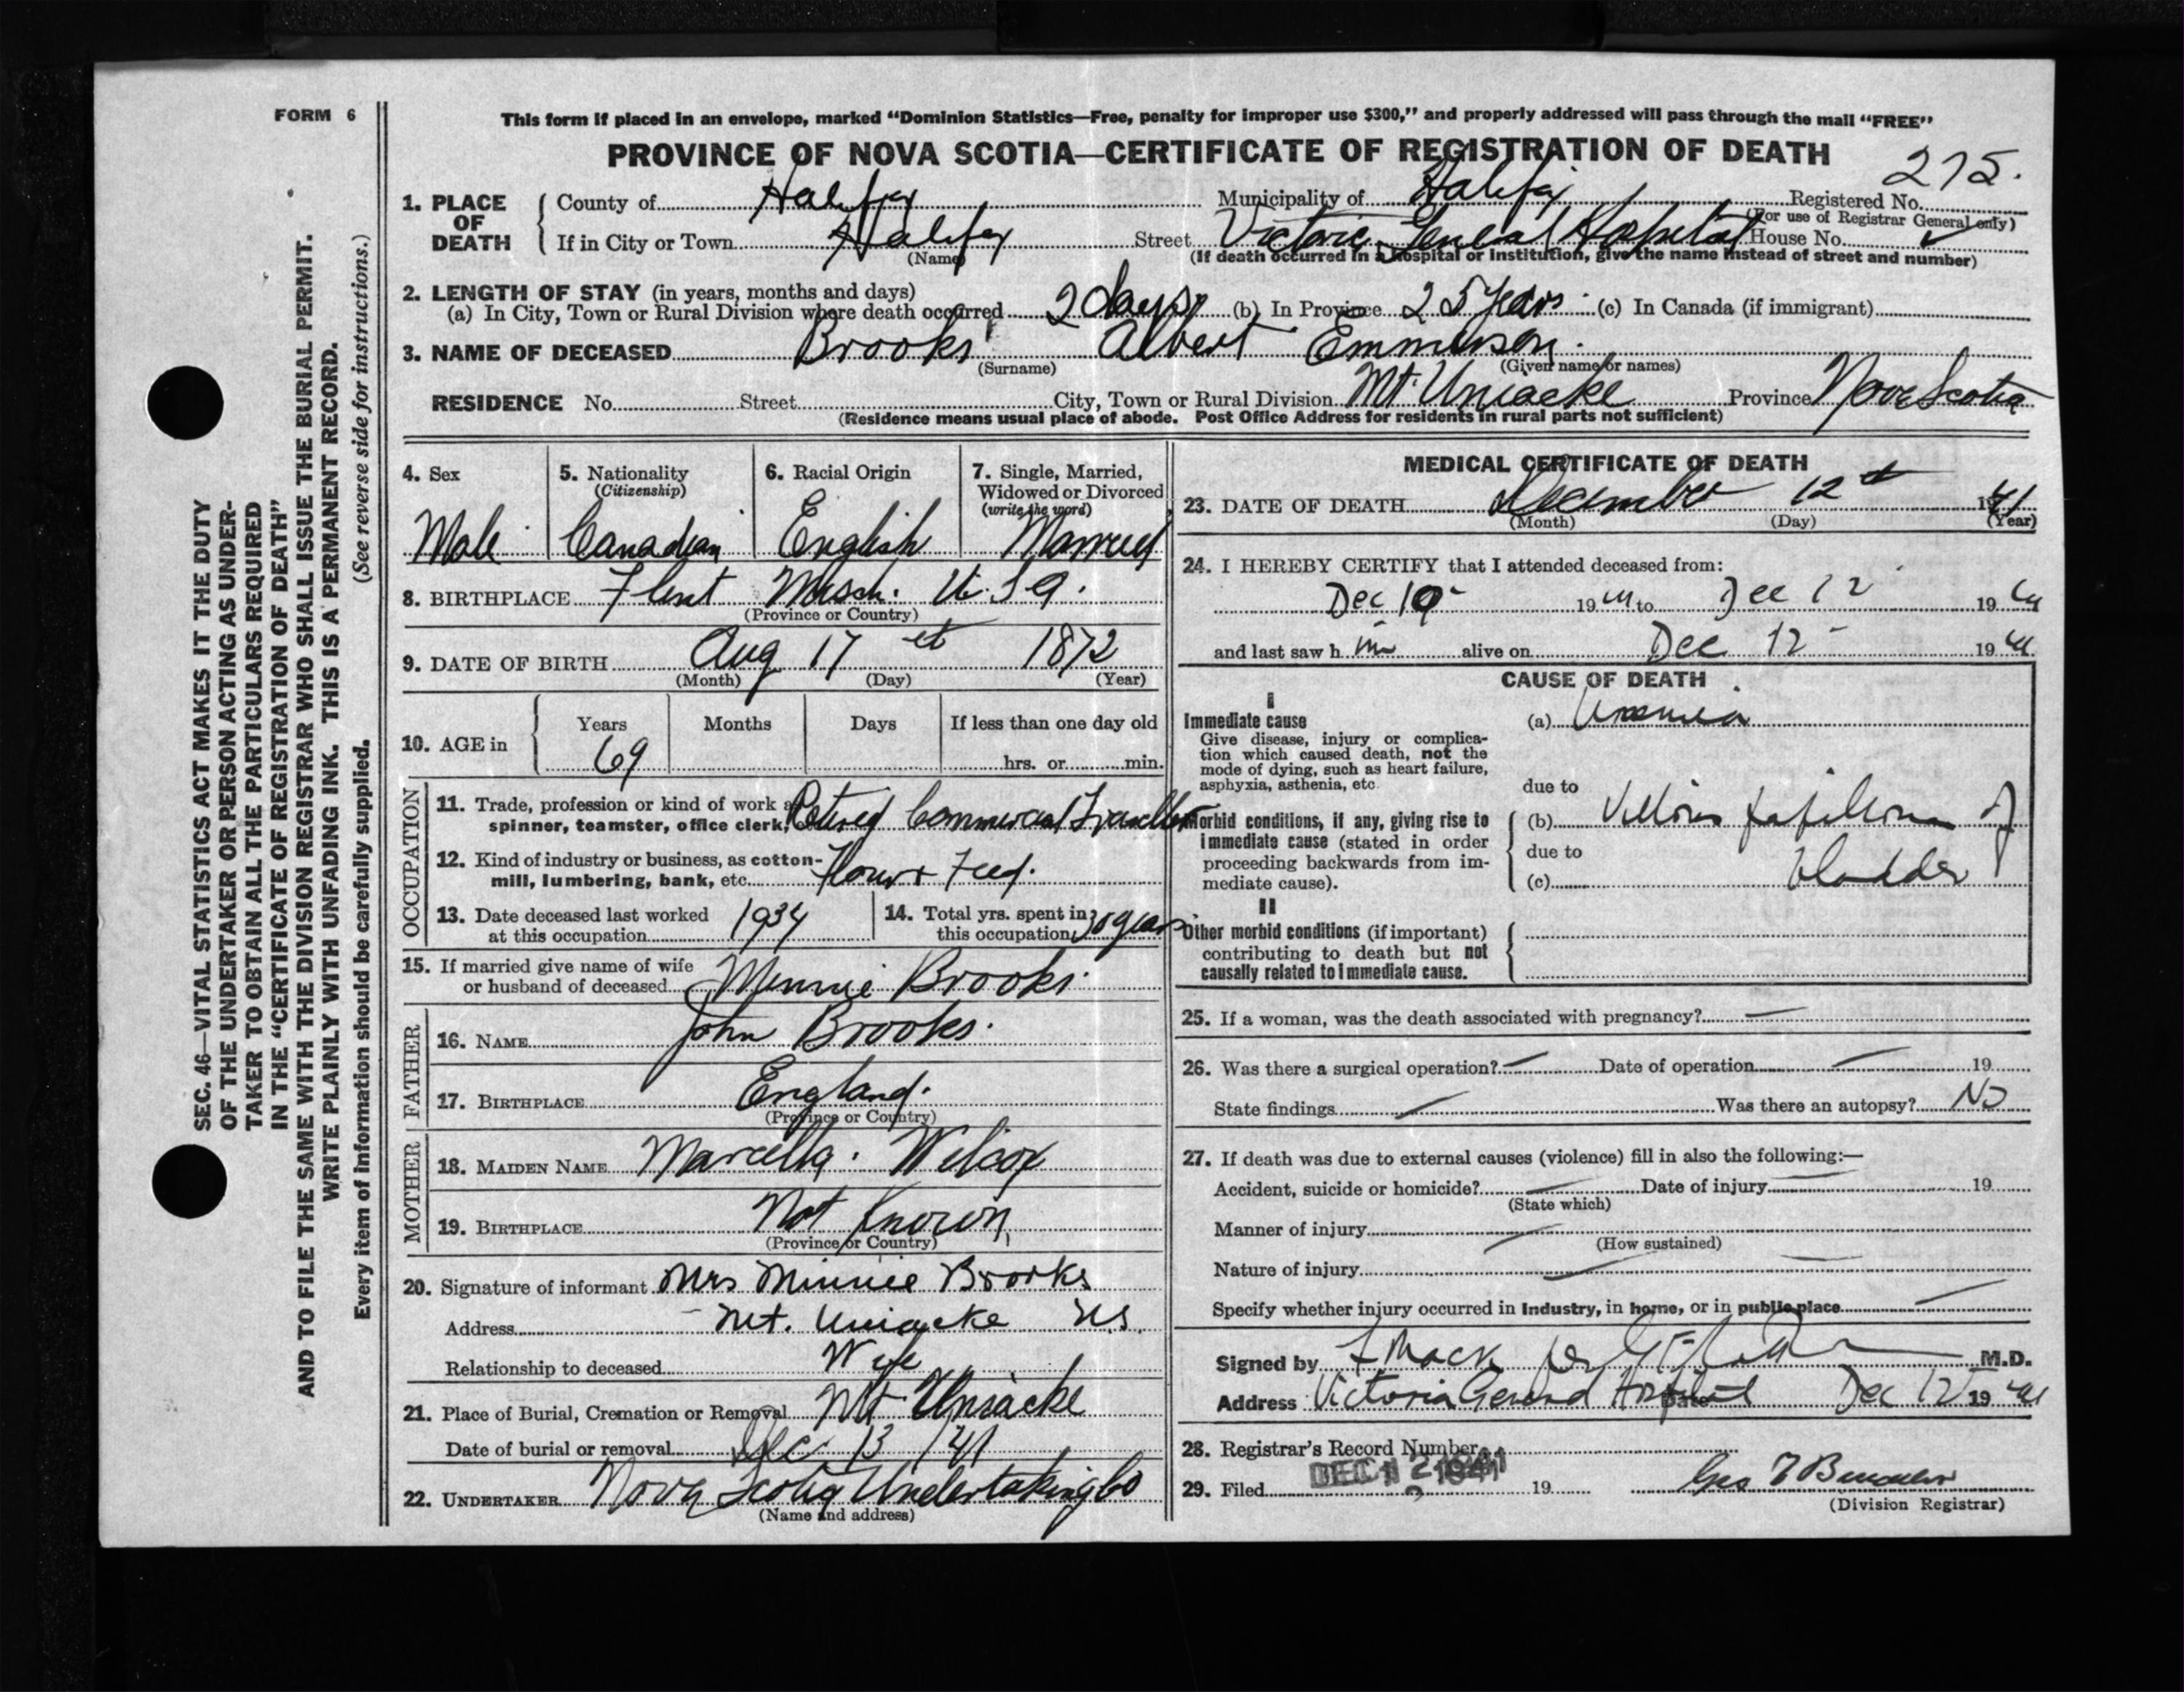 FORM 6
This form if placed in an envelope, marked “Dominion Statistics—Free, penalty for improper use $300,” and properly addressed will pass through the mail “FREE”
PROVINCE OF NOVA SCOTIA—CERTIFICATE OF REGISTRATION OF DEATH
275.
1. PLACE OF DEATH
County of Halifax Municipality of Halifax Registered No.
(For use of Registrar General only)
If in City or Town Halifax Street Victoria General Hospital House No.
(Name)
(If death occurred in a hospital or institution, give the name instead of street and number)
2. LENGTH OF STAY (in years, months and days)
(a) In City, Town or Rural Division where death occurred 2 days (b) In Province 25 years (c) In Canada (if immigrant)
3. NAME OF DECEASED Brooks Albert Emmerson.
(Surname) (Given name or names)
RESIDENCE No. Street City, Town or Rural Division Mt. Uniacke Province Nova Scotia
(Residence means usual place of abode. Post Office Address for residents in rural parts not sufficient)
4. Sex
Male
5. Nationality
(Citizenship)
Canadian
6. Racial Origin
English
7. Single, Married,
Widowed or Divorced
(write the word)
Married
8. BIRTHPLACE Flint U.S.A.
(Province or Country)
9. DATE OF BIRTH Aug 17 1872
(Month) (Day) (Year)
10. AGE in
Years Months Days If less than one day old
69 hrs. or min.
OCCUPATION
11. Trade, profession or kind of work as
spinner, teamster, office clerk, Retired Commercial Traveller
12. Kind of industry or business, as cotton-
mill, lumbering, bank, etc. Flour & Feed.
13. Date deceased last worked
at this occupation 1934
14. Total yrs. spent in
this occupation 30 years
15. If married give name of wife
or husband of deceased Minnie Brooks.
FATHER
16. NAME John Brooks.
17. BIRTHPLACE England.
(Province or Country)
MOTHER
18. MAIDEN NAME Marcella. Wilcox
19. BIRTHPLACE Not Known
(Province or Country)
20. Signature of informant Mrs Minnie Brooks
Address Mt. Uniacke N.S.
Relationship to deceased Wife
21. Place of Burial, Cremation or Removal Mt Uniacke
Date of burial or removal Dec 13 /41
22. UNDERTAKER Nova Scotia Undertaking Co
(Name and address)
MEDICAL CERTIFICATE OF DEATH
23. DATE OF DEATH December 12th 1941
(Month) (Day) (Year)
24. I HEREBY CERTIFY that I attended deceased from:
Dec 10 1941 to Dec 12 1941
and last saw him alive on Dec 12 1941
CAUSE OF DEATH
I
Immediate cause
Give disease, injury or complica-
tion which caused death, not the
mode of dying, such as heart failure,
asphyxia, asthenia, etc
(a) Uraemia
due to
Morbid conditions, if any, giving rise to
immediate cause (stated in order
proceeding backwards from im-
mediate cause).
(b) Villous papilloma of
due to
(c) bladder
II
Other morbid conditions (if important)
contributing to death but not
causally related to immediate cause.
25. If a woman, was the death associated with pregnancy? —
26. Was there a surgical operation? — Date of operation — 19
State findings — Was there an autopsy? No
27. If death was due to external causes (violence) fill in also the following:—
Accident, suicide or homicide? — Date of injury — 19
(State which)
Manner of injury —
(How sustained)
Nature of injury —
Specify whether injury occurred in industry, in home, or in public place —
Signed by Mack M.D.
Address Victoria General Hospital Date Dec 12 1941
28. Registrar's Record Number
29. Filed DEC 12 1941 19
(Division Registrar)
SEC. 46—VITAL STATISTICS ACT MAKES IT THE DUTY
OF THE UNDERTAKER OR PERSON ACTING AS UNDER-
TAKER TO OBTAIN ALL THE PARTICULARS REQUIRED
IN THE “CERTIFICATE OF REGISTRATION OF DEATH”
AND TO FILE THE SAME WITH THE DIVISION REGISTRAR WHO SHALL ISSUE THE BURIAL PERMIT.
WRITE PLAINLY WITH UNFADING INK. THIS IS A PERMANENT RECORD.
Every item of information should be carefully supplied. (See reverse side for instructions.)